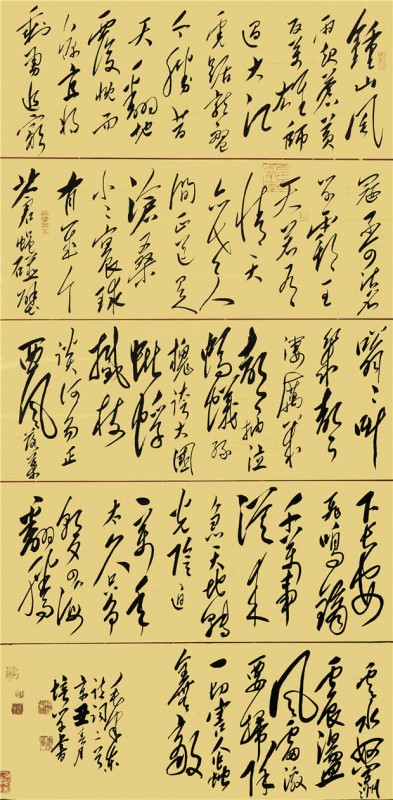 鍾山风
雨起苍黄
百万雄师
过大江
虎踞龙盘
今胜昔
天翻地
覆慨而
慷宜将
剩勇追穷
寇不可沽名
学霸王
天若有
情天
亦老人
间正道是
沧桑
小小寰球
有几个
苍蝇碰壁
嗡嗡叫
几声
凄厉几
声抽泣
蚂蚁缘
槐夸大国
蚍蜉
撼树
谈何易正
西风落叶
下长安
飞鸣镝
多少事
从来
急天地转
光阴迫
一万年
太久只争
朝夕四海
翻腾
云水怒五洲
震荡
风雷激
要扫除
一切害人虫
全无敌
毛泽东
诗词二首
辛丑月
培学书